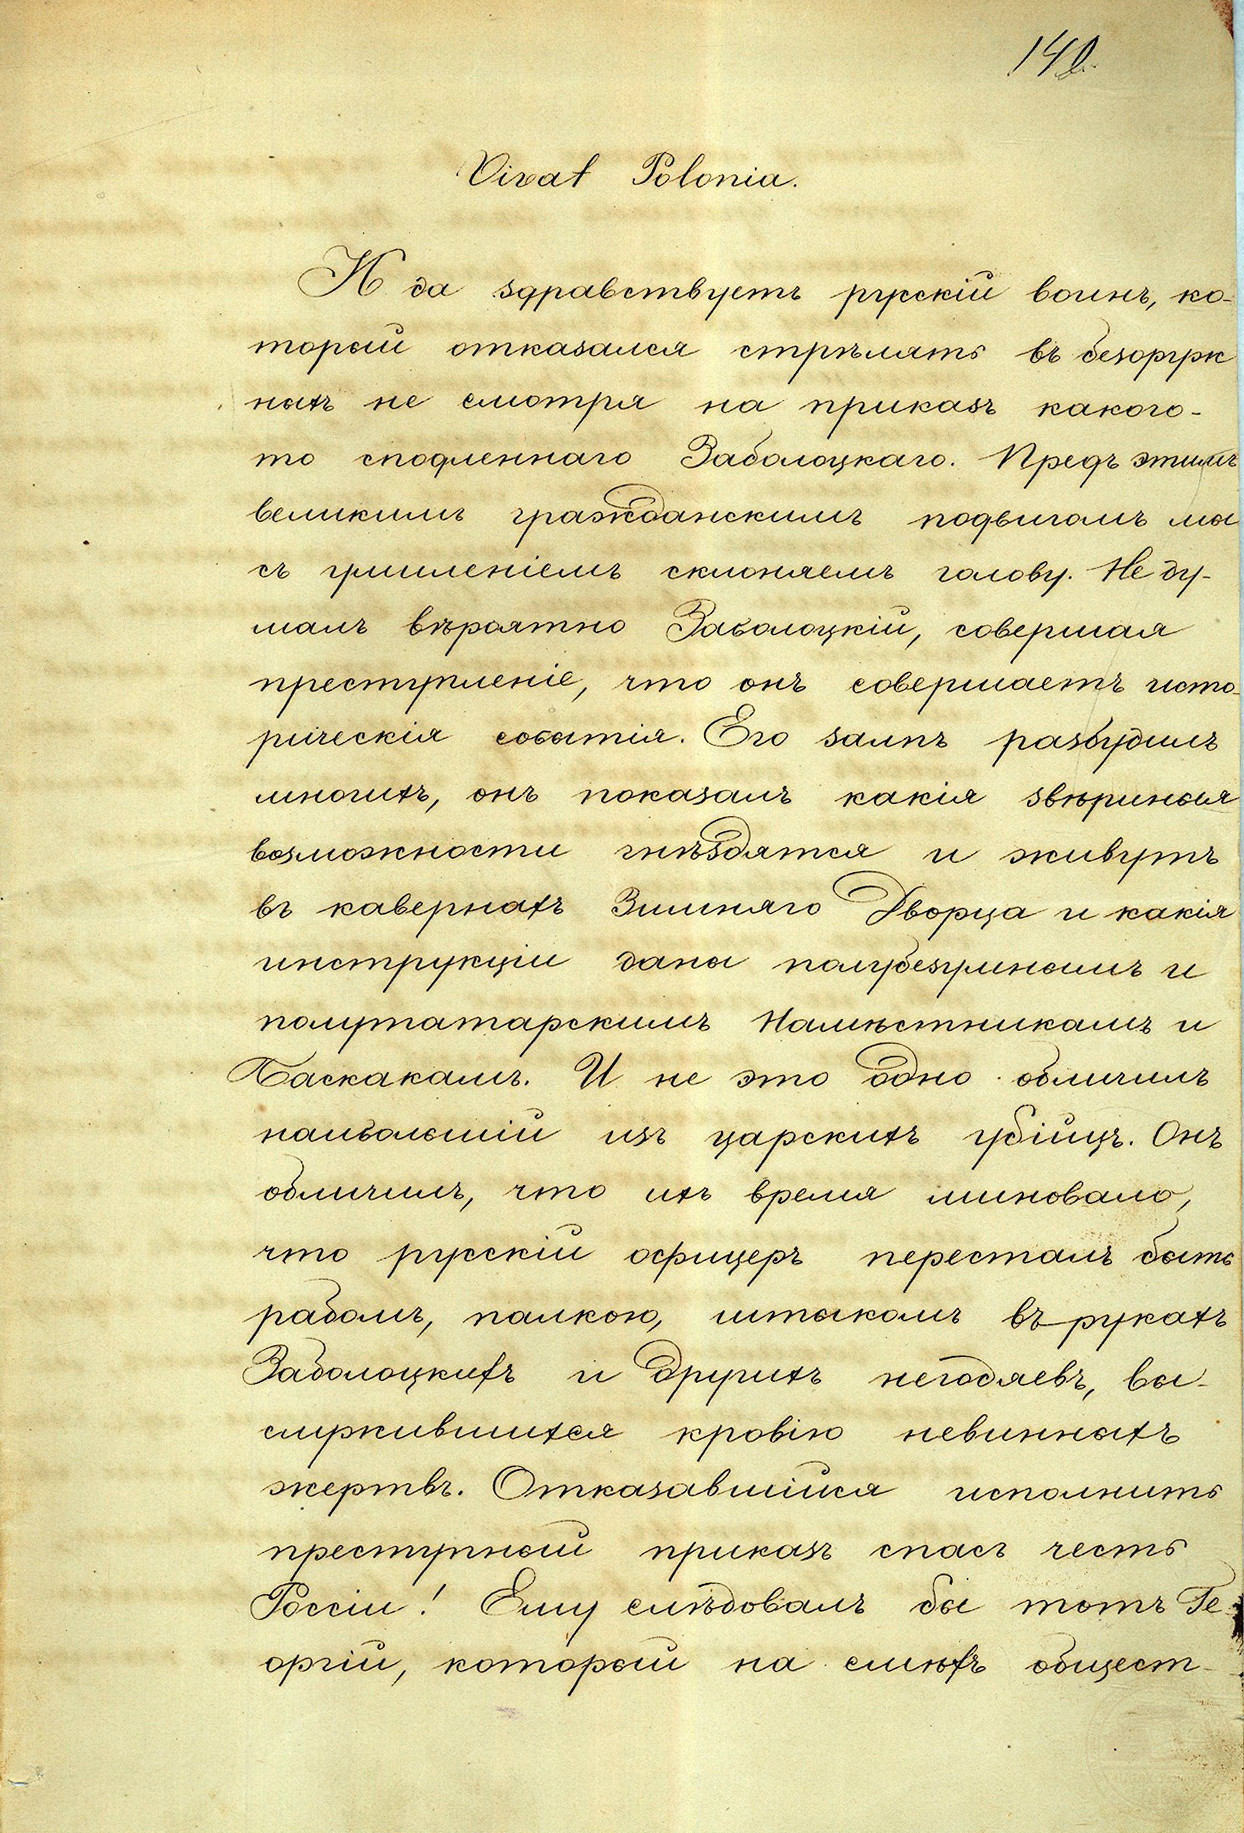 140.
Vivat Polonia.
И да здравствуетъ русскій воинъ, ко-
торый отказался стрѣлять въ безоруж
ныхъ не смотря на приказъ какого-
то сподленнаго Заболоцкаго. Предъ этимъ
великимъ гражданскимъ подвигомъ мы
съ умиленіемъ склоняемъ голову. Не ду-
малъ вѣроятно Заболоцкій, совершая
преступленіе, что онъ совершаетъ исто-
рическія событія. Его залпъ разбудилъ
многихъ, онъ показалъ какія звѣриныя
возможности гнѣздятся и живутъ
въ кавернахъ Зимняго Дворца и какія
инструкціи даны полубезумнымъ и
полутатарскимъ Намѣстникамъ и
Баскакамъ. И не это одно обличилъ
наибольшій изъ царскихъ убійцъ. Онъ
обличилъ, что ихъ время миновало,
что русскій офицеръ пересталъ быть
рабомъ, палкою, штыкомъ въ рукахъ
Заболоцкихъ и другихъ негодяевъ, вы-
служившихся кровію невинныхъ
жертвъ. Отказавшійся исполнить
преступный приказъ спасъ честь
Россіи! Ему слѣдовалъ бы тотъ Ге-
оргій, который на смѣхъ общест-